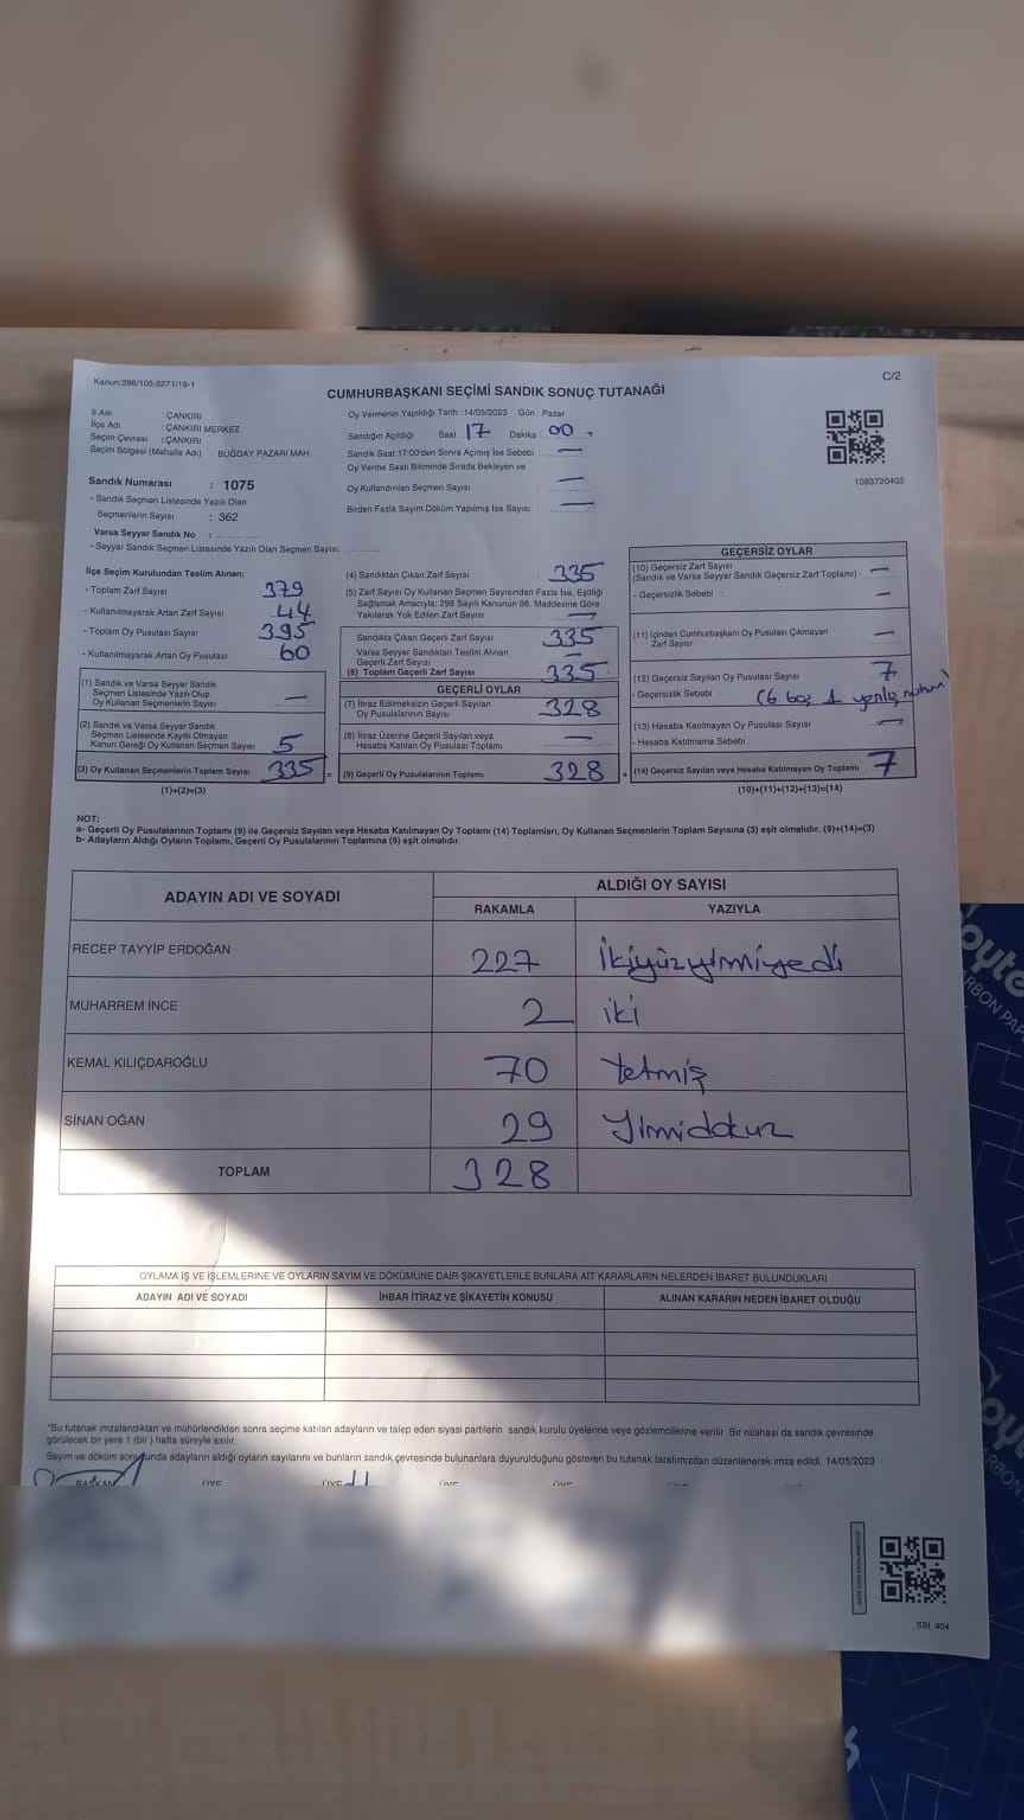 Kanun:298/105-5271/19-1
C/2
CUMHURBAŞKANI SEÇİMİ SANDIK SONUÇ TUTANAĞI
İl Adı : ÇANKIRI
İlçe Adı : ÇANKIRI MERKEZ
Seçim Çevresi : ÇANKIRI
Seçim Bölgesi (Mahalle Adı) : BUĞDAY PAZARI MAH.
Sandık Numarası : 1075
- Sandık Seçmen Listesinde Yazılı Olan
Seçmenlerin Sayısı : 362
Varsa Seyyar Sandık No :
- Seyyar Sandık Seçmen Listesinde Yazılı Olan Seçmen Sayısı:
Oy Vermenin Yapıldığı Tarih :14/05/2023 Gün : Pazar
Sandığın Açıldığı Saat 17 Dakika : 00
Sandık Saat 17:00'den Sonra Açılmış İse Sebebi : —
Oy Verme Saati Bitiminde Sırada Bekleyen ve
Oy Kullandırılan Seçmen Sayısı —
Birden Fazla Sayım Döküm Yapılmış İse Sayısı —
1083720402
İlçe Seçim Kurulundan Teslim Alınan:
- Toplam Zarf Sayısı 379
- Kullanılmayarak Artan Zarf Sayısı 44
- Toplam Oy Pusulası Sayısı 395
- Kullanılmayarak Artan Oy Pusulası 60
(1) Sandık ve Varsa Seyyar Sandık
Seçmen Listesinde Yazılı Olup
Oy Kullanan Seçmenlerin Sayısı —
(2) Sandık ve Varsa Seyyar Sandık
Seçmen Listesinde Kayıtlı Olmayan
Kanun Gereği Oy Kullanan Seçmen Sayısı 5
(3) Oy Kullanan Seçmenlerin Toplam Sayısı 335 =
(1)+(2)=(3)
(4) Sandıktan Çıkan Zarf Sayısı 335
(5) Zarf Sayısı Oy Kullanan Seçmen Sayısından Fazla İse, Eşitliği
Sağlamak Amacıyla; 298 Sayılı Kanunun 98. Maddesine Göre
Yakılarak Yok Edilen Zarf Sayısı —
Sandıkta Çıkan Geçerli Zarf Sayısı 335
Varsa Seyyar Sandıktan Teslim Alınan
Geçerli Zarf Sayısı —
(6) Toplam Geçerli Zarf Sayısı 335
GEÇERLİ OYLAR
(7) İtiraz Edilmeksizin Geçerli Sayılan
Oy Pusulalarının Sayısı 328
(8) İtiraz Üzerine Geçerli Sayılan veya
Hesaba Katılan Oy Pusulası Toplamı —
(9) Geçerli Oy Pusulalarının Toplamı 328 +
GEÇERSİZ OYLAR
(10) Geçersiz Zarf Sayısı
(Sandık ve Varsa Seyyar Sandık Geçersiz Zarf Toplamı) —
- Geçersizlik Sebebi : —
(11) İçinden Cumhurbaşkanı Oy Pusulası Çıkmayan
Zarf Sayısı —
(12) Geçersiz Sayılan Oy Pusulası Sayısı 7
- Geçersizlik Sebebi (6 boş 1 yanlış mühür)
(13) Hesaba Katılmayan Oy Pusulası Sayısı —
- Hesaba Katılmama Sebebi :
(14) Geçersiz Sayılan veya Hesaba Katılmayan Oy Toplamı 7
(10)+(11)+(12)+(13)=(14)
NOT:
a- Geçerli Oy Pusulalarının Toplamı (9) ile Geçersiz Sayılan veya Hesaba Katılmayan Oy Toplamı (14) Toplamları, Oy Kullanan Seçmenlerin Toplam Sayısına (3) eşit olmalıdır. (9)+(14)=(3)
b- Adayların Aldığı Oyların Toplamı, Geçerli Oy Pusulalarının Toplamına (9) eşit olmalıdır.
ADAYIN ADI VE SOYADI
ALDIĞI OY SAYISI
RAKAMLA YAZIYLA
RECEP TAYYİP ERDOĞAN 227 İkiyüzyirmiyedi
MUHARREM İNCE 2 iki
KEMAL KILIÇDAROĞLU 70 Yetmiş
SİNAN OĞAN 29 Yirmidokuz
TOPLAM 328
OYLAMA İŞ VE İŞLEMLERİNE VE OYLARIN SAYIM VE DÖKÜMÜNE DAİR ŞİKAYETLERLE BUNLARA AİT KARARLARIN NELERDEN İBARET BULUNDUKLARI
ADAYIN ADI VE SOYADI İHBAR İTİRAZ VE ŞİKAYETİN KONUSU ALINAN KARARIN NEDEN İBARET OLDUĞU
*Bu tutanak imzalandıktan ve mühürlendikten sonra seçime katılan adayların ve talep eden siyasi partilerin sandık kurulu üyelerine veya gözlemcilerine verilir. Bir nüshası da sandık çevresinde
görülecek bir yere 1 (bir ) hafta süreyle asılır.
Sayım ve döküm sonucunda adayların aldığı oyların sayılarını ve bunların sandık çevresinde bulunanlara duyurulduğunu gösteren bu tutanak tarafımızdan düzenlenerek imza edildi. 14/05/2023
BAŞKAN ÜYE ÜYE ÜYE ÜYE
SSI_404